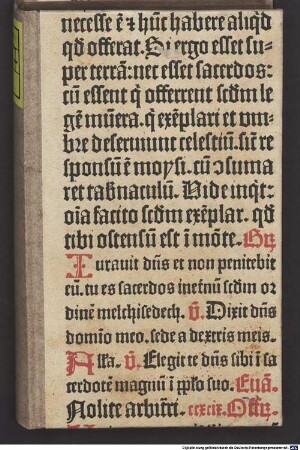 necesse ē ⁊ hūc habere aliq̄d
qd̄ offerat. Si ergo esset su-
per terrā: nec esset sacerdos:
cū essent q̄ offerrent scdm̄ le
gē mūera. q̄ exēplari et vm-
bre deseruiunt celestiū. sic̄ re
sponsū ē moysi. cū ↄsuma
ret tab̄naculū. Uide inq̄t:
oīa facito scdm̄ exēplar. qd̄
tibi ostensū est ī mōte. Gr̄
Iurauit dn̄s et non penitebit
eū. tu es sacerdos ineternū scdm̄ or
dinē melchisedech. V̄. Dixit dn̄s
domīo meo. sede a dextris meis.
Alla. V̄. Elegit te dn̄s sibi ī sa
cerdotē magnū ī pplo suo. Euā.
Nolite arbitri. ccxcix. Offr̄.